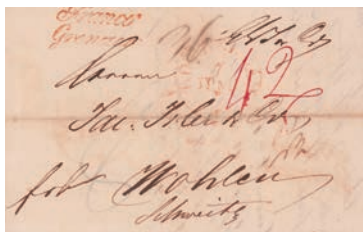 Franco
Grenze
42
Herren
Jac. Isler & Co
Wohlen
Schweitz